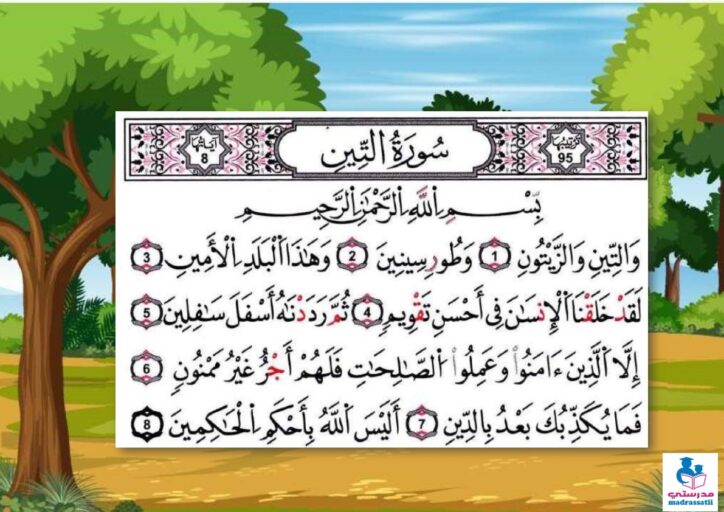 ترتيبها 95
سُورَةُ التِّينِ
آيَاتُهَا 8
بِسْمِ اِللَّهِ اِلرَّحْمَٰنِ اِلرَّحِيمِ
وَالتِّينِ وَالزَّيْتُونِ 1 وَطُورِ سِينِينَ 2 وَهَٰذَا اَلْبَلَدِ اِلْأَمِينِ 3
لَقَدْ خَلَقْنَا اَلْإِنسَٰنَ فِي أَحْسَنِ تَقْوِيمٍ 4 ثُمَّ رَدَدْنَٰهُ أَسْفَلَ سَٰفِلِينَ 5
إِلَّا اَلَّذِينَ ءَامَنُواْ وَعَمِلُواْ اُلصَّٰلِحَٰتِ فَلَهُمْ أَجْرٌ غَيْرُ مَمْنُونٍ 6
فَمَا يُكَذِّبُكَ بَعْدُ بِالدِّينِ 7 أَلَيْسَ اَللَّهُ بِأَحْكَمِ اِلْحَٰكِمِينَ 8
مدرستي
madrassatii